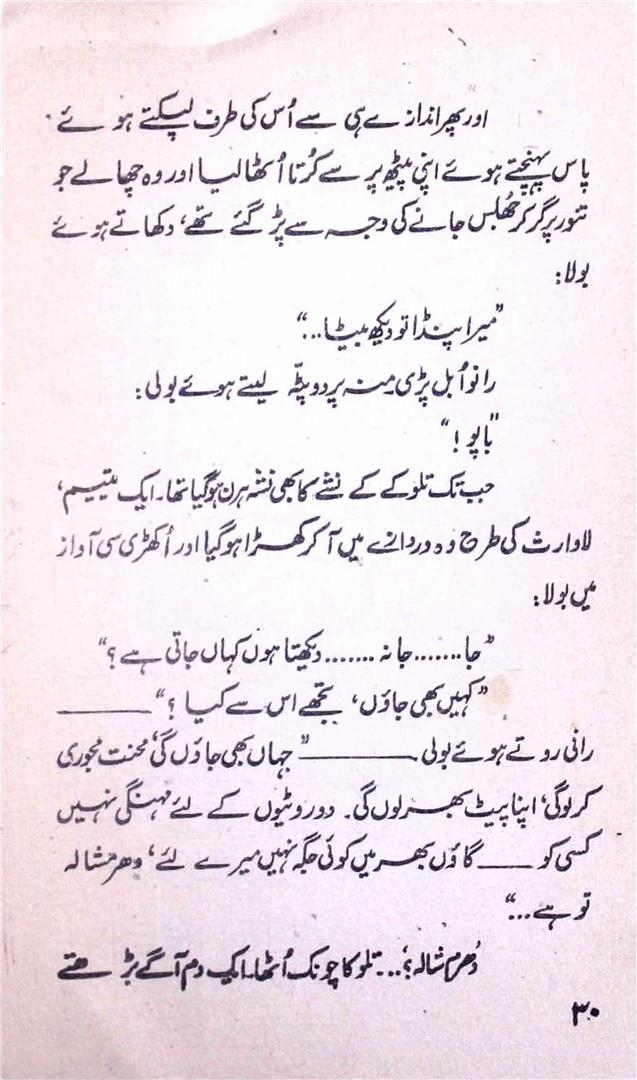 اور پھر اندازے ہی سے اُس کی طرف لپکتے ہوئے
پاس پہنچتے ہوئے اپنی پیٹھ پر سے کُرتا اُٹھا لیا اور وہ چھالے جو
تنور پر گر کر جھُلس جانے کی وجہ سے پڑ گئے تھے، دکھاتے ہوئے
بولا:
”میرا پنڈا تو دیکھ بیٹا...“
رانو اُبل پڑی منہ پر دوپٹّہ لیتے ہوئے بولی:
”باپو!“
جب تک تلوکے کے نشے کا بھی نشہ ہرن ہو گیا تھا۔ ایک یتیم،
لاوارث کی طرح وہ دروازے میں آ کر کھڑا ہو گیا اور اُکھڑی سی آواز
میں بولا:
”جا....... جا نہ ....... دیکھتا ہوں کہاں جاتی ہے؟“
”کہیں بھی جاؤں، تجھے اس سے کیا؟“ ______
رانی روتے ہوئے بولی ______ ”جہاں بھی جاؤں گی، محنت مجوری
کر لوگی، اپنا پیٹ بھر لوں گی۔ دو روٹیوں کے لئے مہنگی نہیں
کسی کو ____ گاؤں بھر میں کوئی جگہ نہیں میرے لئے، دھرمشالہ
تو ہے...“
دُھرم شالہ؟... تلوکا چونک اُٹھا۔ ایک دم آگے بڑھتے
۳۰